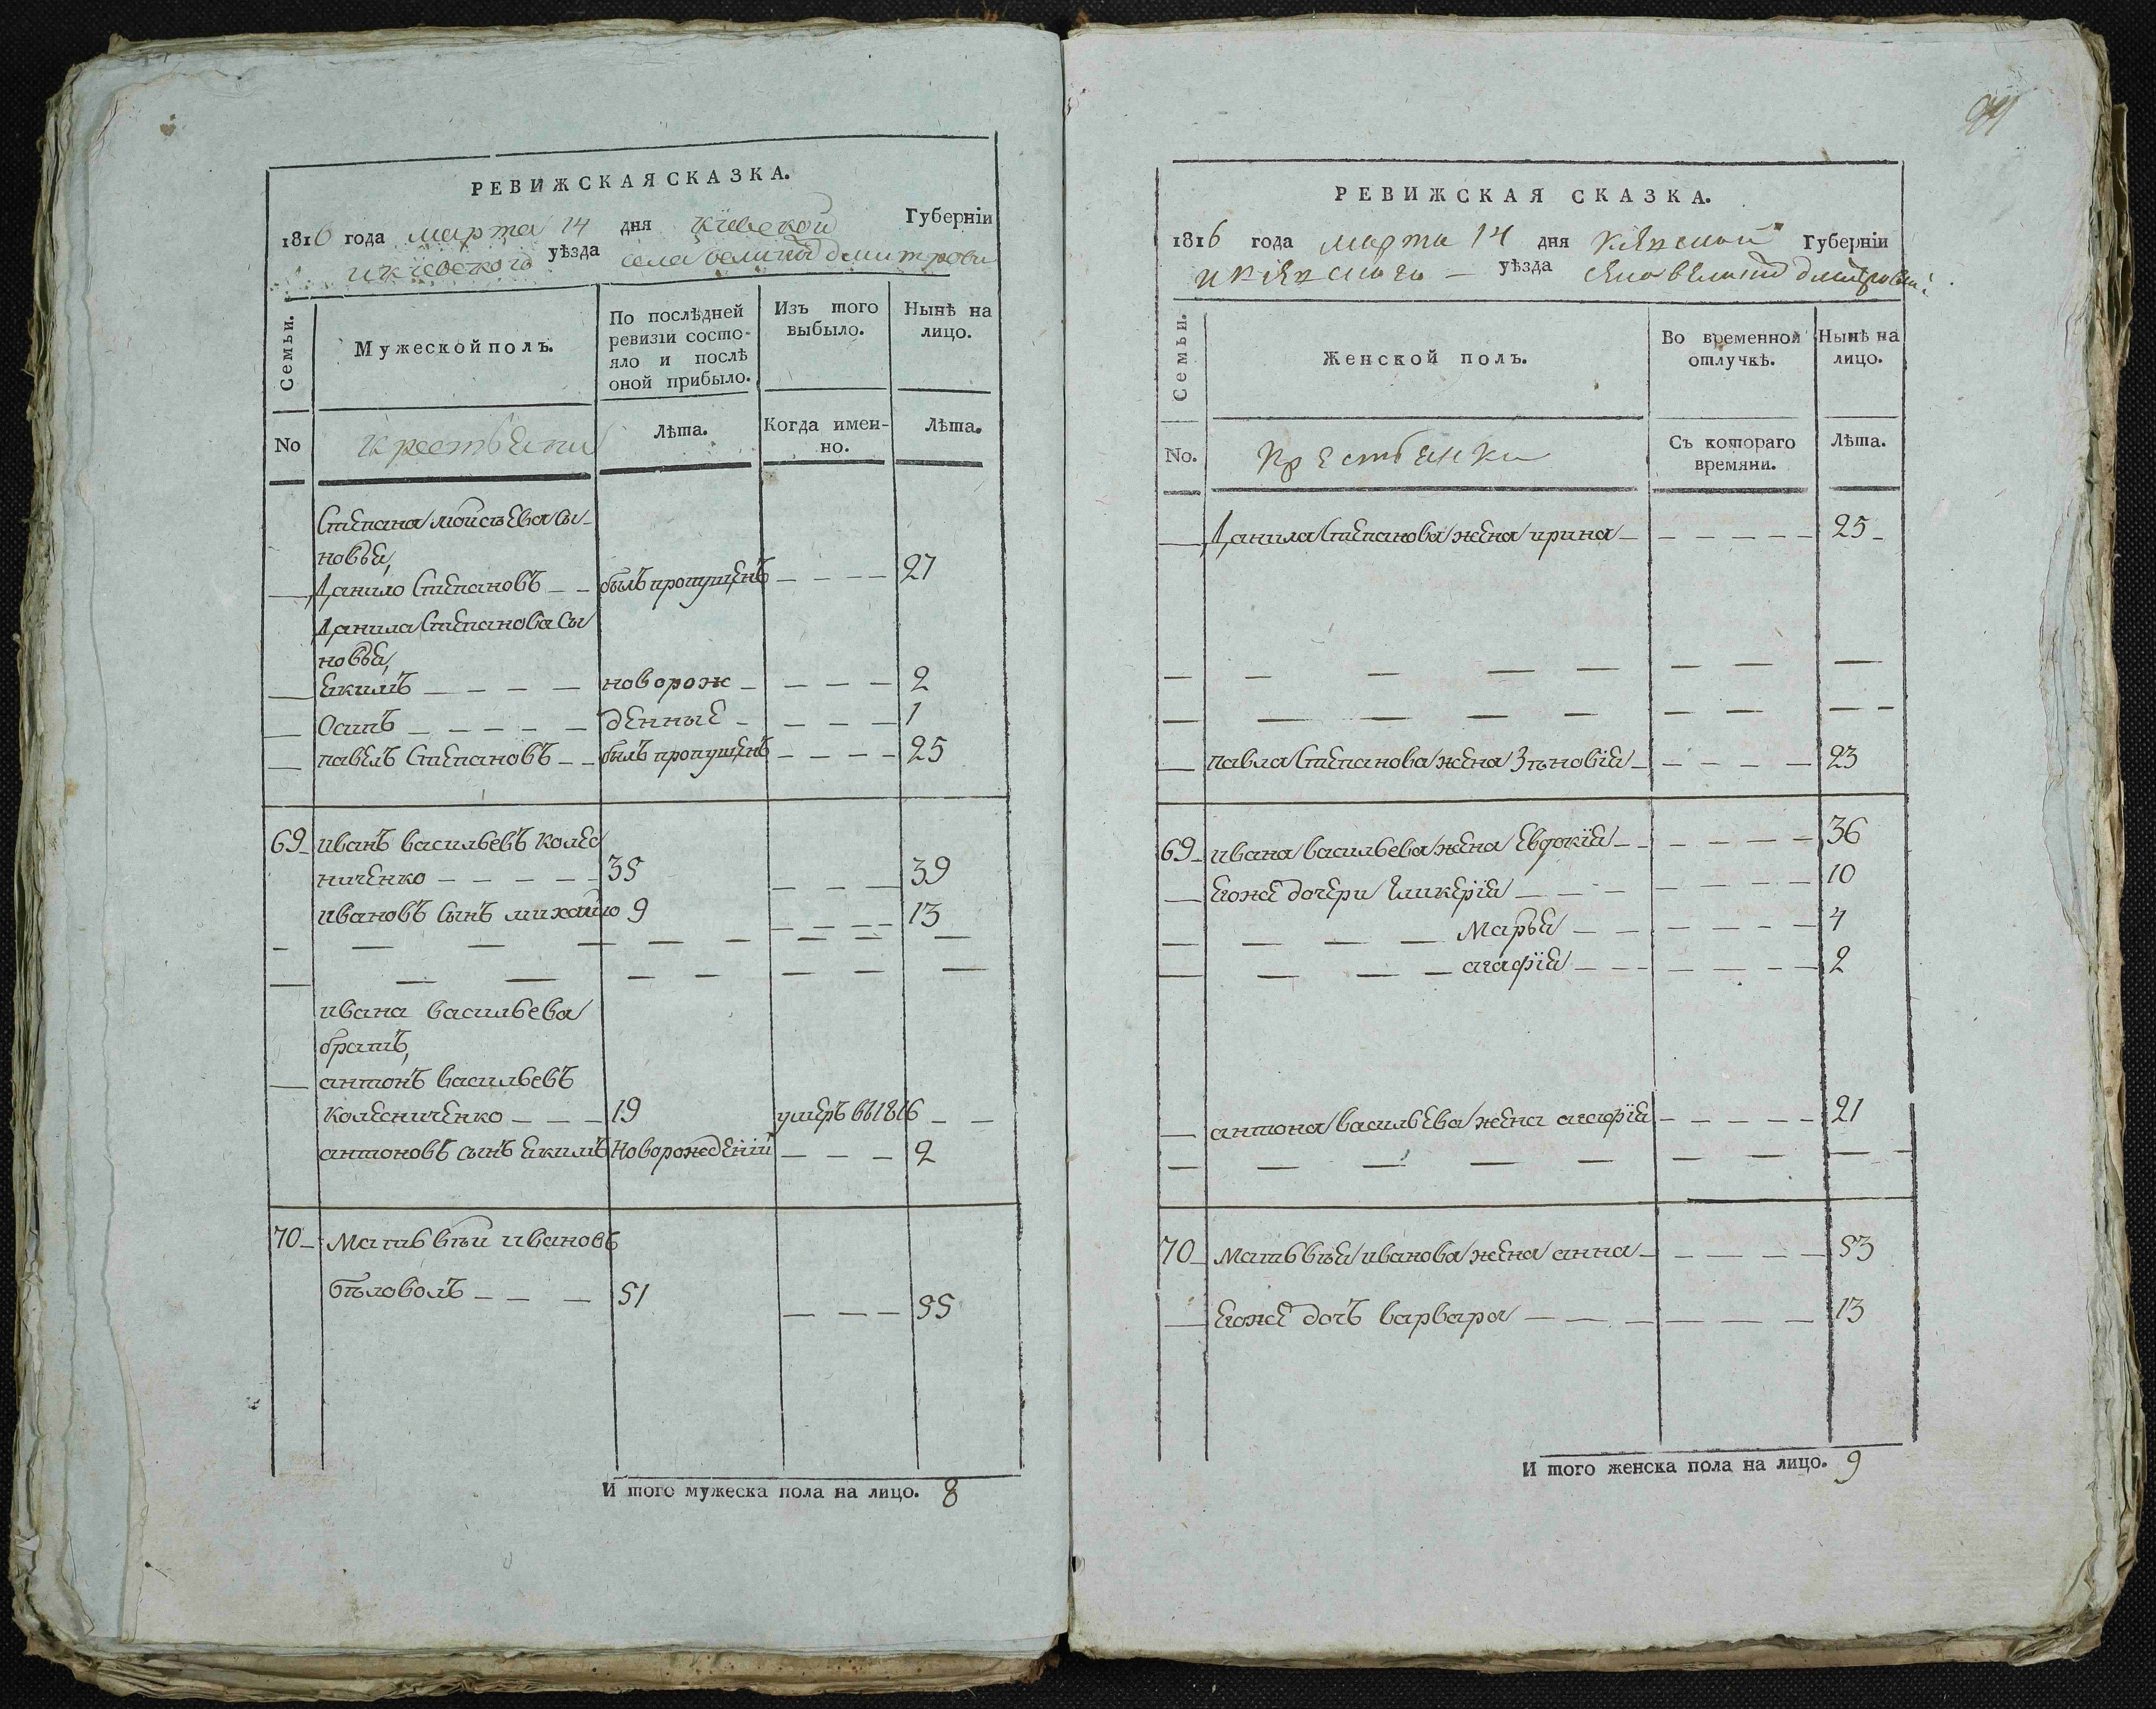 РЕВИЖСКАЯ СКАЗКА.
1816 года марта 14 дня Кіевской Губерніи
и Кіевского уѣзда села великой дмитровки
Семьи.
Мужеской полъ.
По послѣдней
ревизіи состо-
яло и послѣ
оной прибыло.
Изъ того
выбыло.
Нынѣ на
лицо.
No
крестьяни
Лѣта.
Когда имен-
но.
Лѣта.
Степана моисѣева сы-
новья,
Данило Степановъ — — былъ пропущенъ — — — — 27
Данила Степанова сы
новья,
Екимъ — — — — новорож — — — — 2
Осипъ — — — — — денные — — — — 1
павелъ Степановъ — — былъ пропущенъ — — — — 25
69 иванъ васильевъ колес
ниченко — — — — — 35 — — — 39
ивановъ сынъ михайло 9 — — — — 13
ивана васильева
братъ,
антонъ васильевъ
колесниченко — — — 19 умеръ въ 1816 — —
антоновъ сынъ Екимъ Новорожденій — — — 2
70 Матьвѣи ивановъ
бѣловолъ — — — 51 — — — 55
И того мужеска пола на лицо. 8
94
РЕВИЖСКАЯ СКАЗКА.
1816 года марта 14 дня Кіевской Губерніи
и кіевского — уѣзда села великой дмитровки
Семьи.
Женской полъ.
Во временной
отлучкѣ.
Нынѣ на
лицо.
No.
крестьянки
Съ котораго
времяни.
Лѣта.
Данила Степанова жена ирина — — — — — — 25
павла Степанова жена Зѣновія — — — — — 23
69 ивана васильева жена Евдокія — — — — — — 36
Еюже дочери Гликерія — — — — — — — 10
Марья — — — — — — — 4
агафія — — — — — — — 2
антона васильева жена агафія — — — — — 21
70 Матьвѣя иванова жена анна — — — — — 53
Еюже дочь варвара — — — — — — — 13
И того женска пола на лицо. 9